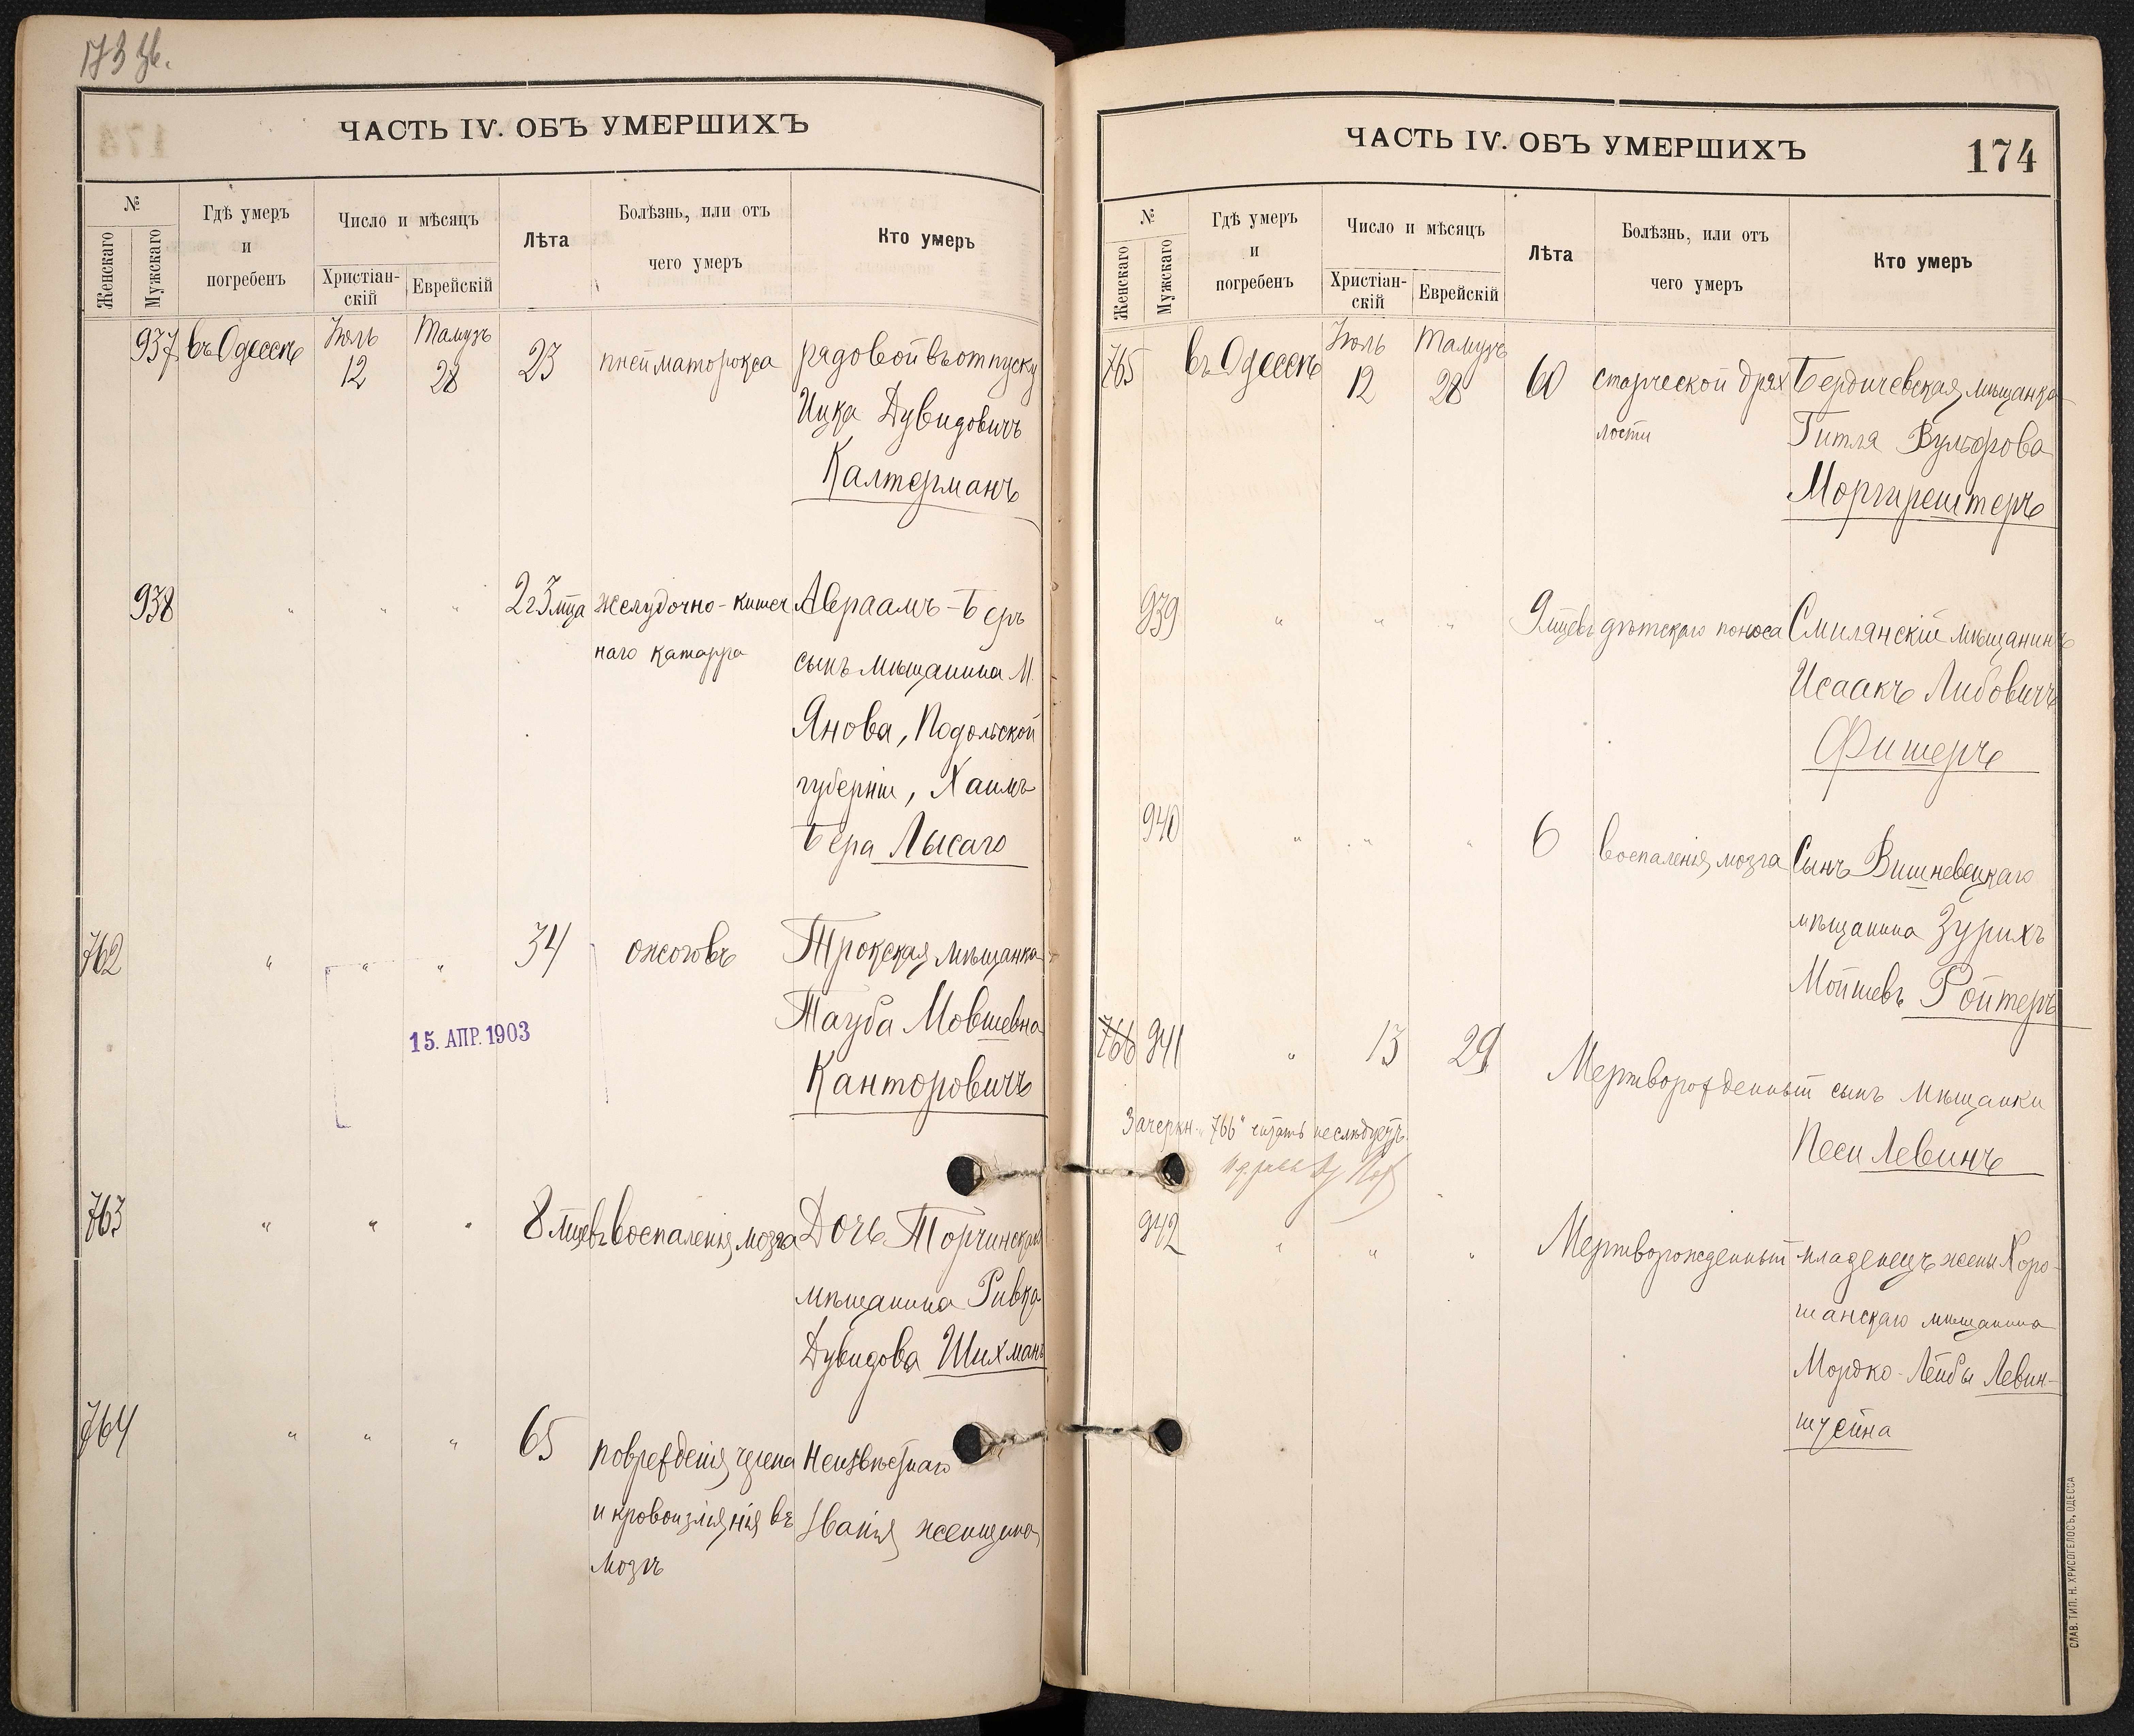 173 об.
ЧАСТЬ IV. ОБЪ УМЕРШИХЪ
№
Женскаго
Мужскаго
Гдѣ умеръ
и
погребенъ
Число и мѣсяцъ
Христіан-
скій
Еврейскій
Лѣта
Болѣзнь, или отъ
чего умеръ
Кто умеръ
937 въ Одессѣ Іюль 12 Тамузъ 28 23 пнейматоракса рядовой въ отпуску
Ицка Дувидовичъ
Калтерманъ
938 " " " 2 г 3 мца желудочно-кишеч Авраамъ-Беръ
наго катарра сынъ мѣщанина м.
Янова, Подольской
губерніи, Хаимъ
Бера Лысаго
762 " " " 34 ожоговъ Трокская мѣщанка
Тауба Мовшевна
15. АПР. 1903
Канторовичъ
763 " " " 8 мцевъ воспаленія мозга Дочь Торчинскаго
мѣщанина Ривка
Дувидова Шихманъ
764 " " " 65 поврежденія черепа Неизвѣстнаго
и кровоизліянія въ званія женщина
мозгъ
ЧАСТЬ IV. ОБЪ УМЕРШИХЪ
174
№
Женскаго
Мужскаго
Гдѣ умеръ
и
погребенъ
Число и мѣсяцъ
Христіан-
скій
Еврейскій
Лѣта
Болѣзнь, или отъ
чего умеръ
Кто умеръ
765 въ Одессѣ Іюль 12 Тамузъ 28 60 старческой дрях Бердичевская мѣщанка
лости Гитля Вульфова
Моргирештеръ
939 " " " 9 мцевъ дѣтскаго поноса Смилянскій мѣщанинъ
Исаакъ Либовичъ
Фишеръ
940 " " " 6 воспаленія мозга Сынъ Вишневецкаго
мѣщанина Зурихъ
Мошиевъ Ройтеръ
766 941 " 13 29 Мертворожденный сынъ мѣщанки
Песи Левинъ
Зачеркн. „766" читать не слѣдуетъ.
942 " " " Мертворожденный младенецъ жены Хоро-
шанскаго мѣщанина
Мордко-Лейбы Левин-
штейна
СЛАВ. ТИП. Н. ХРИСОГЕЛОСЪ, ОДЕССА